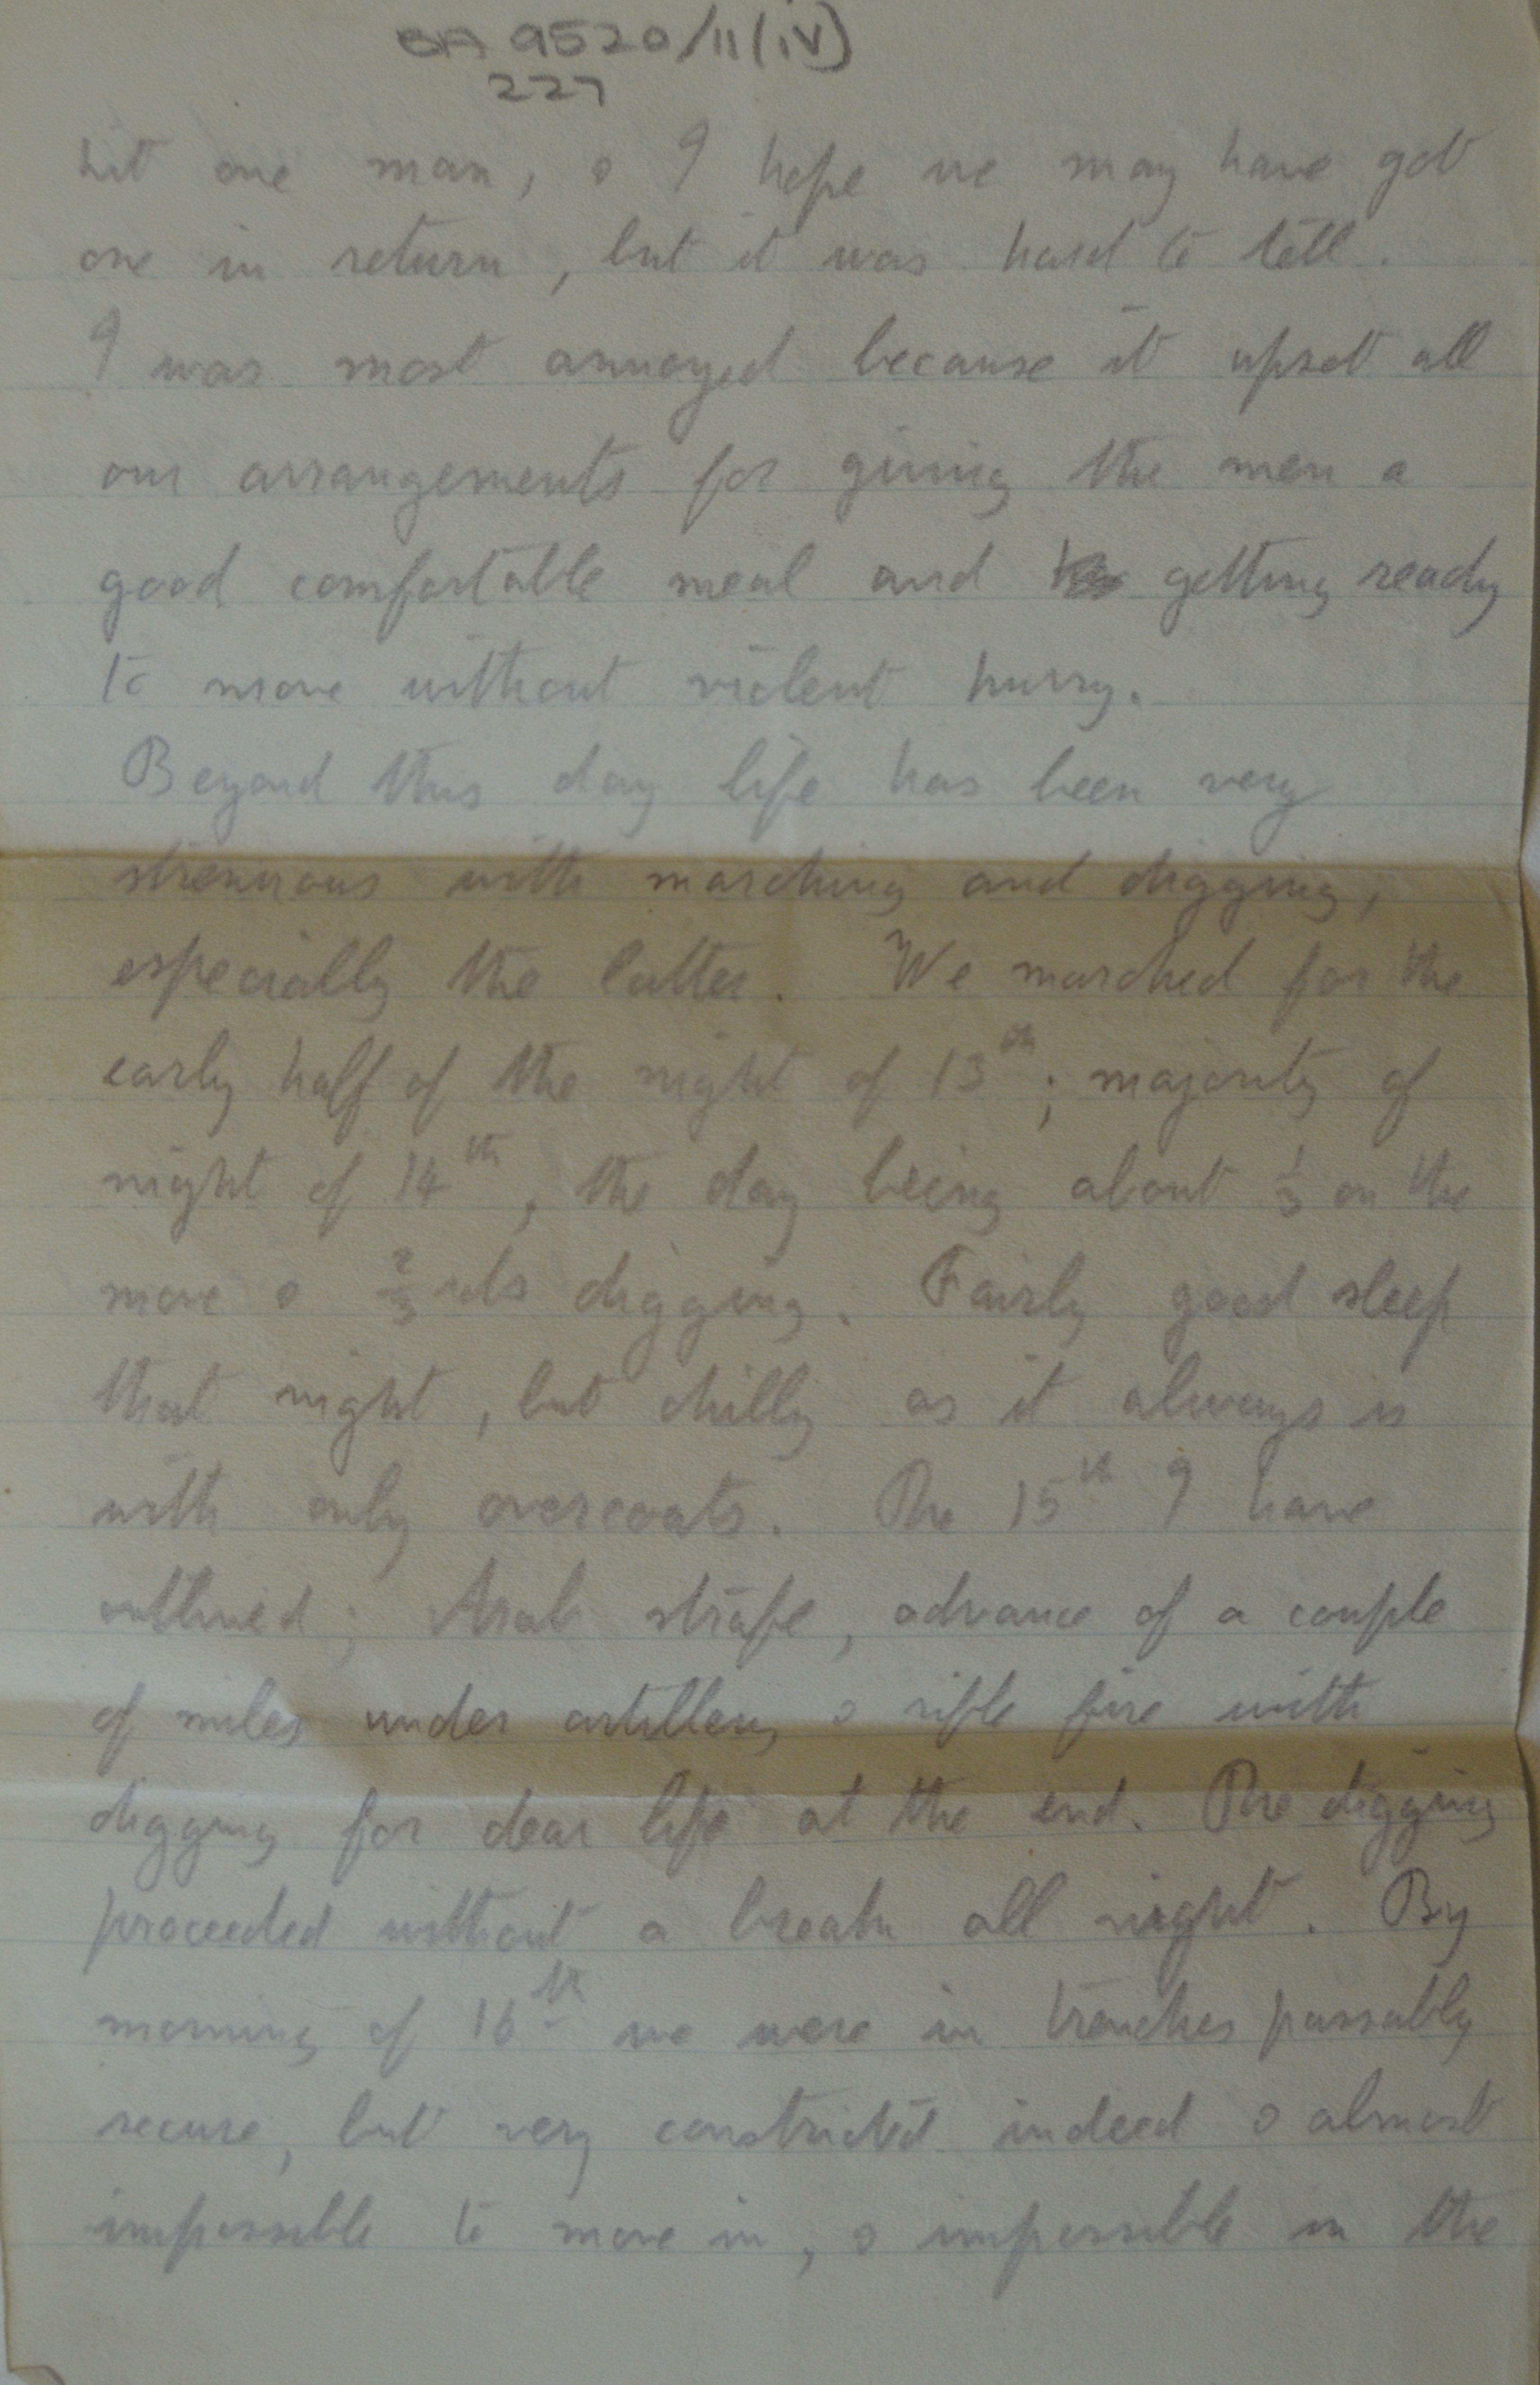 BA 9520/11(iv)
227
hit one man, & I hope we may have got
one in return, but it was hard to tell.
I was most annoyed because it upset all
our arrangements for giving the men a
good comfortable meal and getting ready
to move without violent hurry.
Beyond this day life has been very
strenuous with marching and digging,
especially the latter. We marched for the
early half of the night of 13th; majority of
night of 14th, the day being about 1/3 on the
move & 2/3rds digging. Fairly good sleep
that night, but chilly as it always is
with only overcoats. The 15th I have
outlined; Arab strafe, advance of a couple
of miles under artillery & rifle fire with
digging for dear life at the end. The digging
proceeded without a break all night. By
morning of 16th we were in trenches passably
secure, but very constricted indeed & almost
impossible to move in, & impossible in the